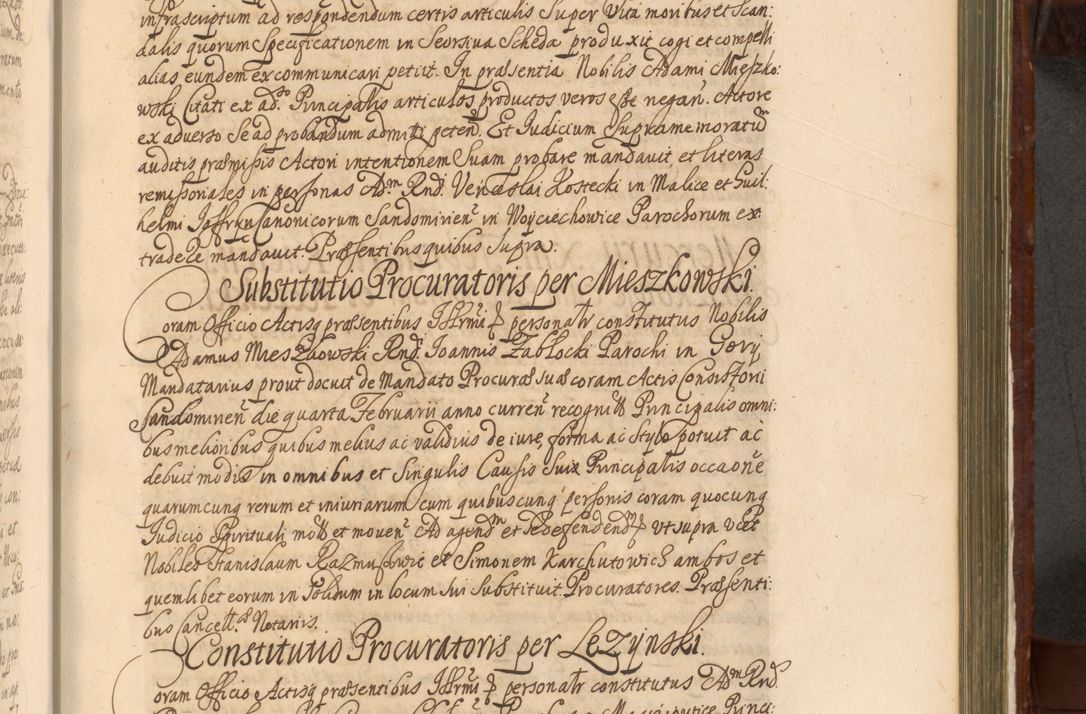 infrascriptum ad respondendum certis articulis super Vita moribus et Scan:
dalis quorum Specificationem in Seorsiva Scheda produxit cogi et compelli
alias eundem excommunicari petiit. In præsentia Nobilis Adami Mieszko:
wski Citati ex ad.o Principalis articulos productos veros esse negan. Actore
ex adverso Se ad probandum admitti peten. Et Iudicium Suprame moratũ
auditis præmissis Actori intentionem Suam probare mandavit et literas
remissoriales in personas Ad.m Rnd. Venceslai Kostecki in Malice et Guil:
helmi Canonicorum Sandomirien in Woyciechowice Parochorum ex:
tradere mandavit. Præsentibus quibus Supra.
Substitutio Procuratoris per Mieszkowski.
Coram Officio Actisq præsentibus personalr constitutus Nobilis
Adamus Mieszkowski Rnd. Ioannis Zabłocki Parochi in Gory
Mandatarius prout docuit de Mandato Procuræ suæ coram Actis Consistorii
Sandomirien die quarta Februarii anno curren recognitt Principalis omni:
bus melioribus quibus melius ac validius de iure, forma ac stylo potuit ac
debuit modis in omnibus et Singulis Causis Suiz Principalis occaone
quarumcunq rerum et iniuriarum cum quibuscunq personis coram quocunq
Iudicio Spirituali mott et moven Ad agend et defendend ut supra
Nobiles Stanislaum Razmusowic et Simonem Karchutowicz ambos et
quemlibet eorum in Solidum in locum Sui Substituit Procuratores. Præsenti:
bus Cancell. Notariis.
Constitutio Procuratoris per Lezynski.
Coram Officio Actisq præsentibus personalr constitutus Ad.m Rnd.